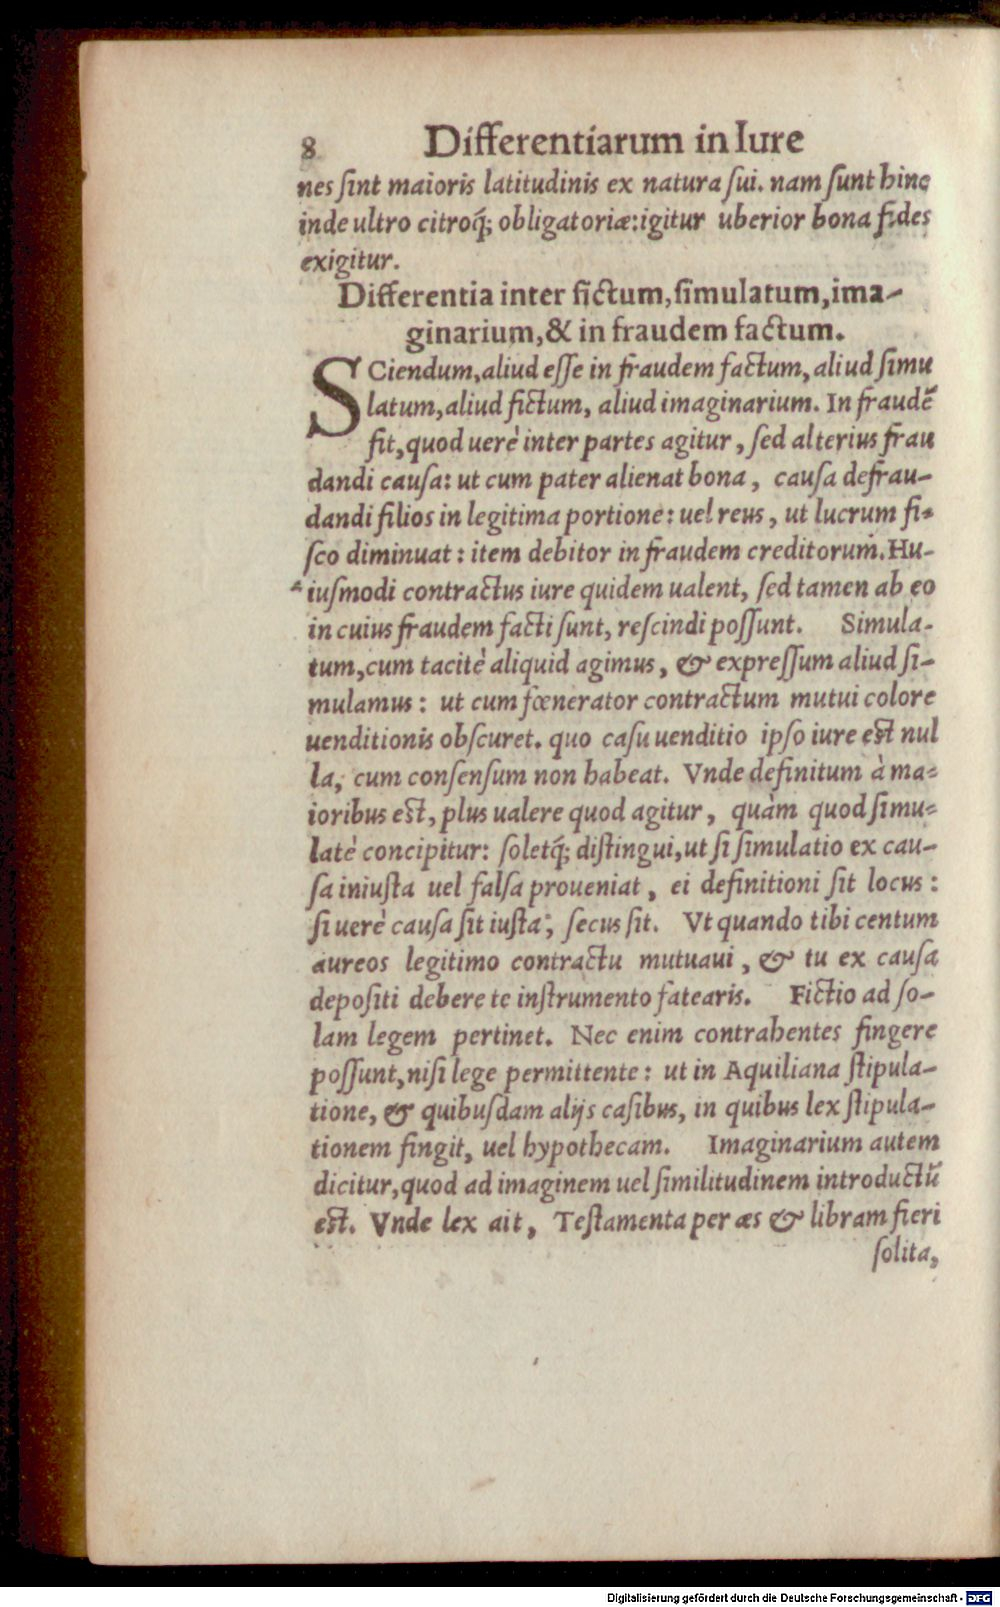 8 Differentiarum in Iure
nes ſint maioris latitudinis ex natura ſui. nam ſunt hinc
inde ultro citroq́; obligatoriæ: igitur uberior bona fides
exigitur.
Differentia inter fictum, ſimulatum, ima-
ginarium, & in fraudem factum.
SCiendum, aliud eſſe in fraudem factum, aliud ſimu
latum, aliud fictum, aliud imaginarium. In fraudẽ
fit, quod uerè inter partes agitur, ſed alterius frau
dandi cauſa: ut cum pater alienat bona, cauſa defrau-
dandi filios in legitima portione: uel reus, ut lucrum fi-
ſco diminuat: item debitor in fraudem creditorum. Hu-
iuſmodi contractus iure quidem ualent, ſed tamen ab eo
in cuius fraudem facti ſunt, reſcindi poſſunt. Simula-
tum, cum tacitè aliquid agimus, & expreſſum aliud ſi-
mulamus: ut cum fœnerator contractum mutui colore
uenditionis obſcuret. quo caſu uenditio ipſo iure est nul
la, cum conſenſum non habeat. Vnde definitum à ma-
ioribus est, plus ualere quod agitur, quàm quod ſimu-
latè concipitur: ſoletq́; diſtingui, ut ſi ſimulatio ex cau-
ſa iniuſta uel falſa proueniat, ei definitioni ſit locus:
ſi uerè cauſa ſit iuſta; ſecus ſit. Vt quando tibi centum
aureos legitimo contractu mutuaui, & tu ex cauſa
depoſiti debere te inſtrumento fatearis. Fictio ad ſo-
lam legem pertinet. Nec enim contrahentes fingere
poſſunt, niſi lege permittente: ut in Aquiliana ſtipula-
tione, & quibuſdam alijs caſibus, in quibus lex ſtipula-
tionem fingit, uel hypothecam. Imaginarium autem
dicitur, quod ad imaginem uel ſimilitudinem introductũ
est. Vnde lex ait, Teſtamenta per æs & libram fieri
ſolita,
Digitalisierung gefördert durch die Deutsche Forschungsgemeinschaft - DFG